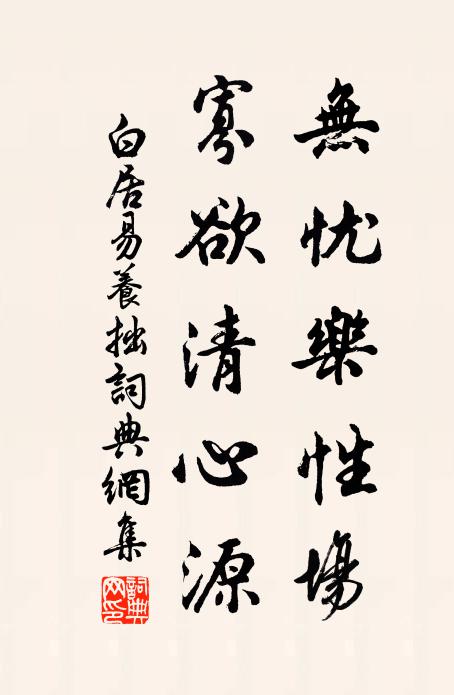 無忧樂性場
寡欲清心源
白居易養拙詞典網集
詞典网印